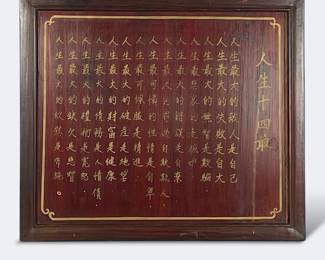 人生十四最
人生最大的敵人是自己
人生最大的失敗是自大
人生最大的無知是欺騙
人生最大的悲哀是嫉妒
人生最大的錯誤是自棄
人生最大的罪過是自欺欺人
人生最可憐的性情是自卑
人生最可佩服是精進
人生最大的破產是絕望
人生最大的財富是健康
人生最大的債務是人情債
人生最大的禮物是寬恕
人生最大的欠是悲智
人生最大的欣是布施